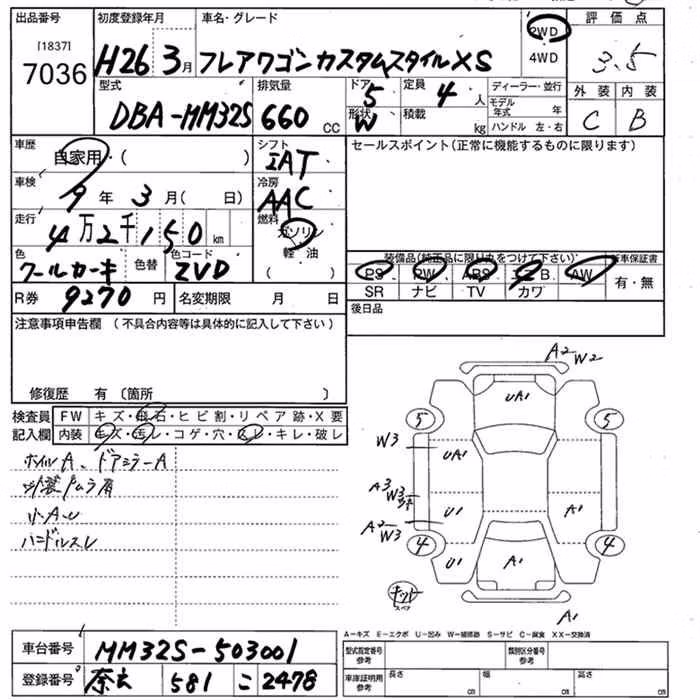 出品番号 初度登録年月 車名・グレード 評価点
[1837]
7036 H26 3月 フレアワゴンカスタムスタイルXS 2WD 4WD 3.5
型式 排気量 ドア 定員 ディーラー・並行 外装 内装
DBA-MM32S 660 CC 5 4人 モデル年式 年 C B
形状 W 積載 kg ハンドル 左・右
車歴 自家用・( ) シフト IAT セールスポイント(正常に機能するものに限ります)
車検 9年3月( 日) 冷房 AAC
走行 4万2千150km 燃料 ガソリン
軽油
( )
色 クールカーキ 色替 色コード ZVD
装備品(純正品に限り丸をつけて下さい) 新車保証書
PS PW ABS エアB. AW 有・無
SR ナビ TV カワ
R券 9270円 名変期限 月 日 後日品
注意事項申告欄 (不具合内容等は具体的に記入して下さい)
修復歴 有 〔箇所 〕
検査員 FW キズ・飛石・ヒビ割・リペア跡・X要
記入欄 内装 キズ・汚レ・コゲ・穴・スレ・キレ・破レ
ホイルA、ドアミラーA
塗装ムラ有
小A.U
ハンドルスレ
A2 W2
UA1
5 5
W3
UA1
A3 W3
U1 A1
A2 W3
4 4
U1 A1
スペア
A1
A-キズ E-エクボ U-凹み W-補修跡 S-サビ C-腐食 XX-交換済
車台番号 MM32S-503001 型式指定番号 参考 類別区分番号 参考
登録番号 奈良 581 こ 2478 車庫証明用 参考 長さ cm 幅 cm 高さ cm